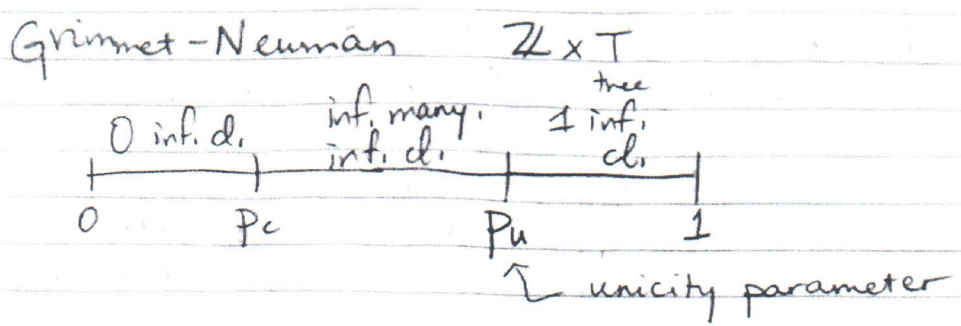 Grimmet-Neuman ℤ × T
tree
0 inf. cl. inf. many. 1 inf.
inf. cl. cl.
0 Pc Pu 1
unicity parameter